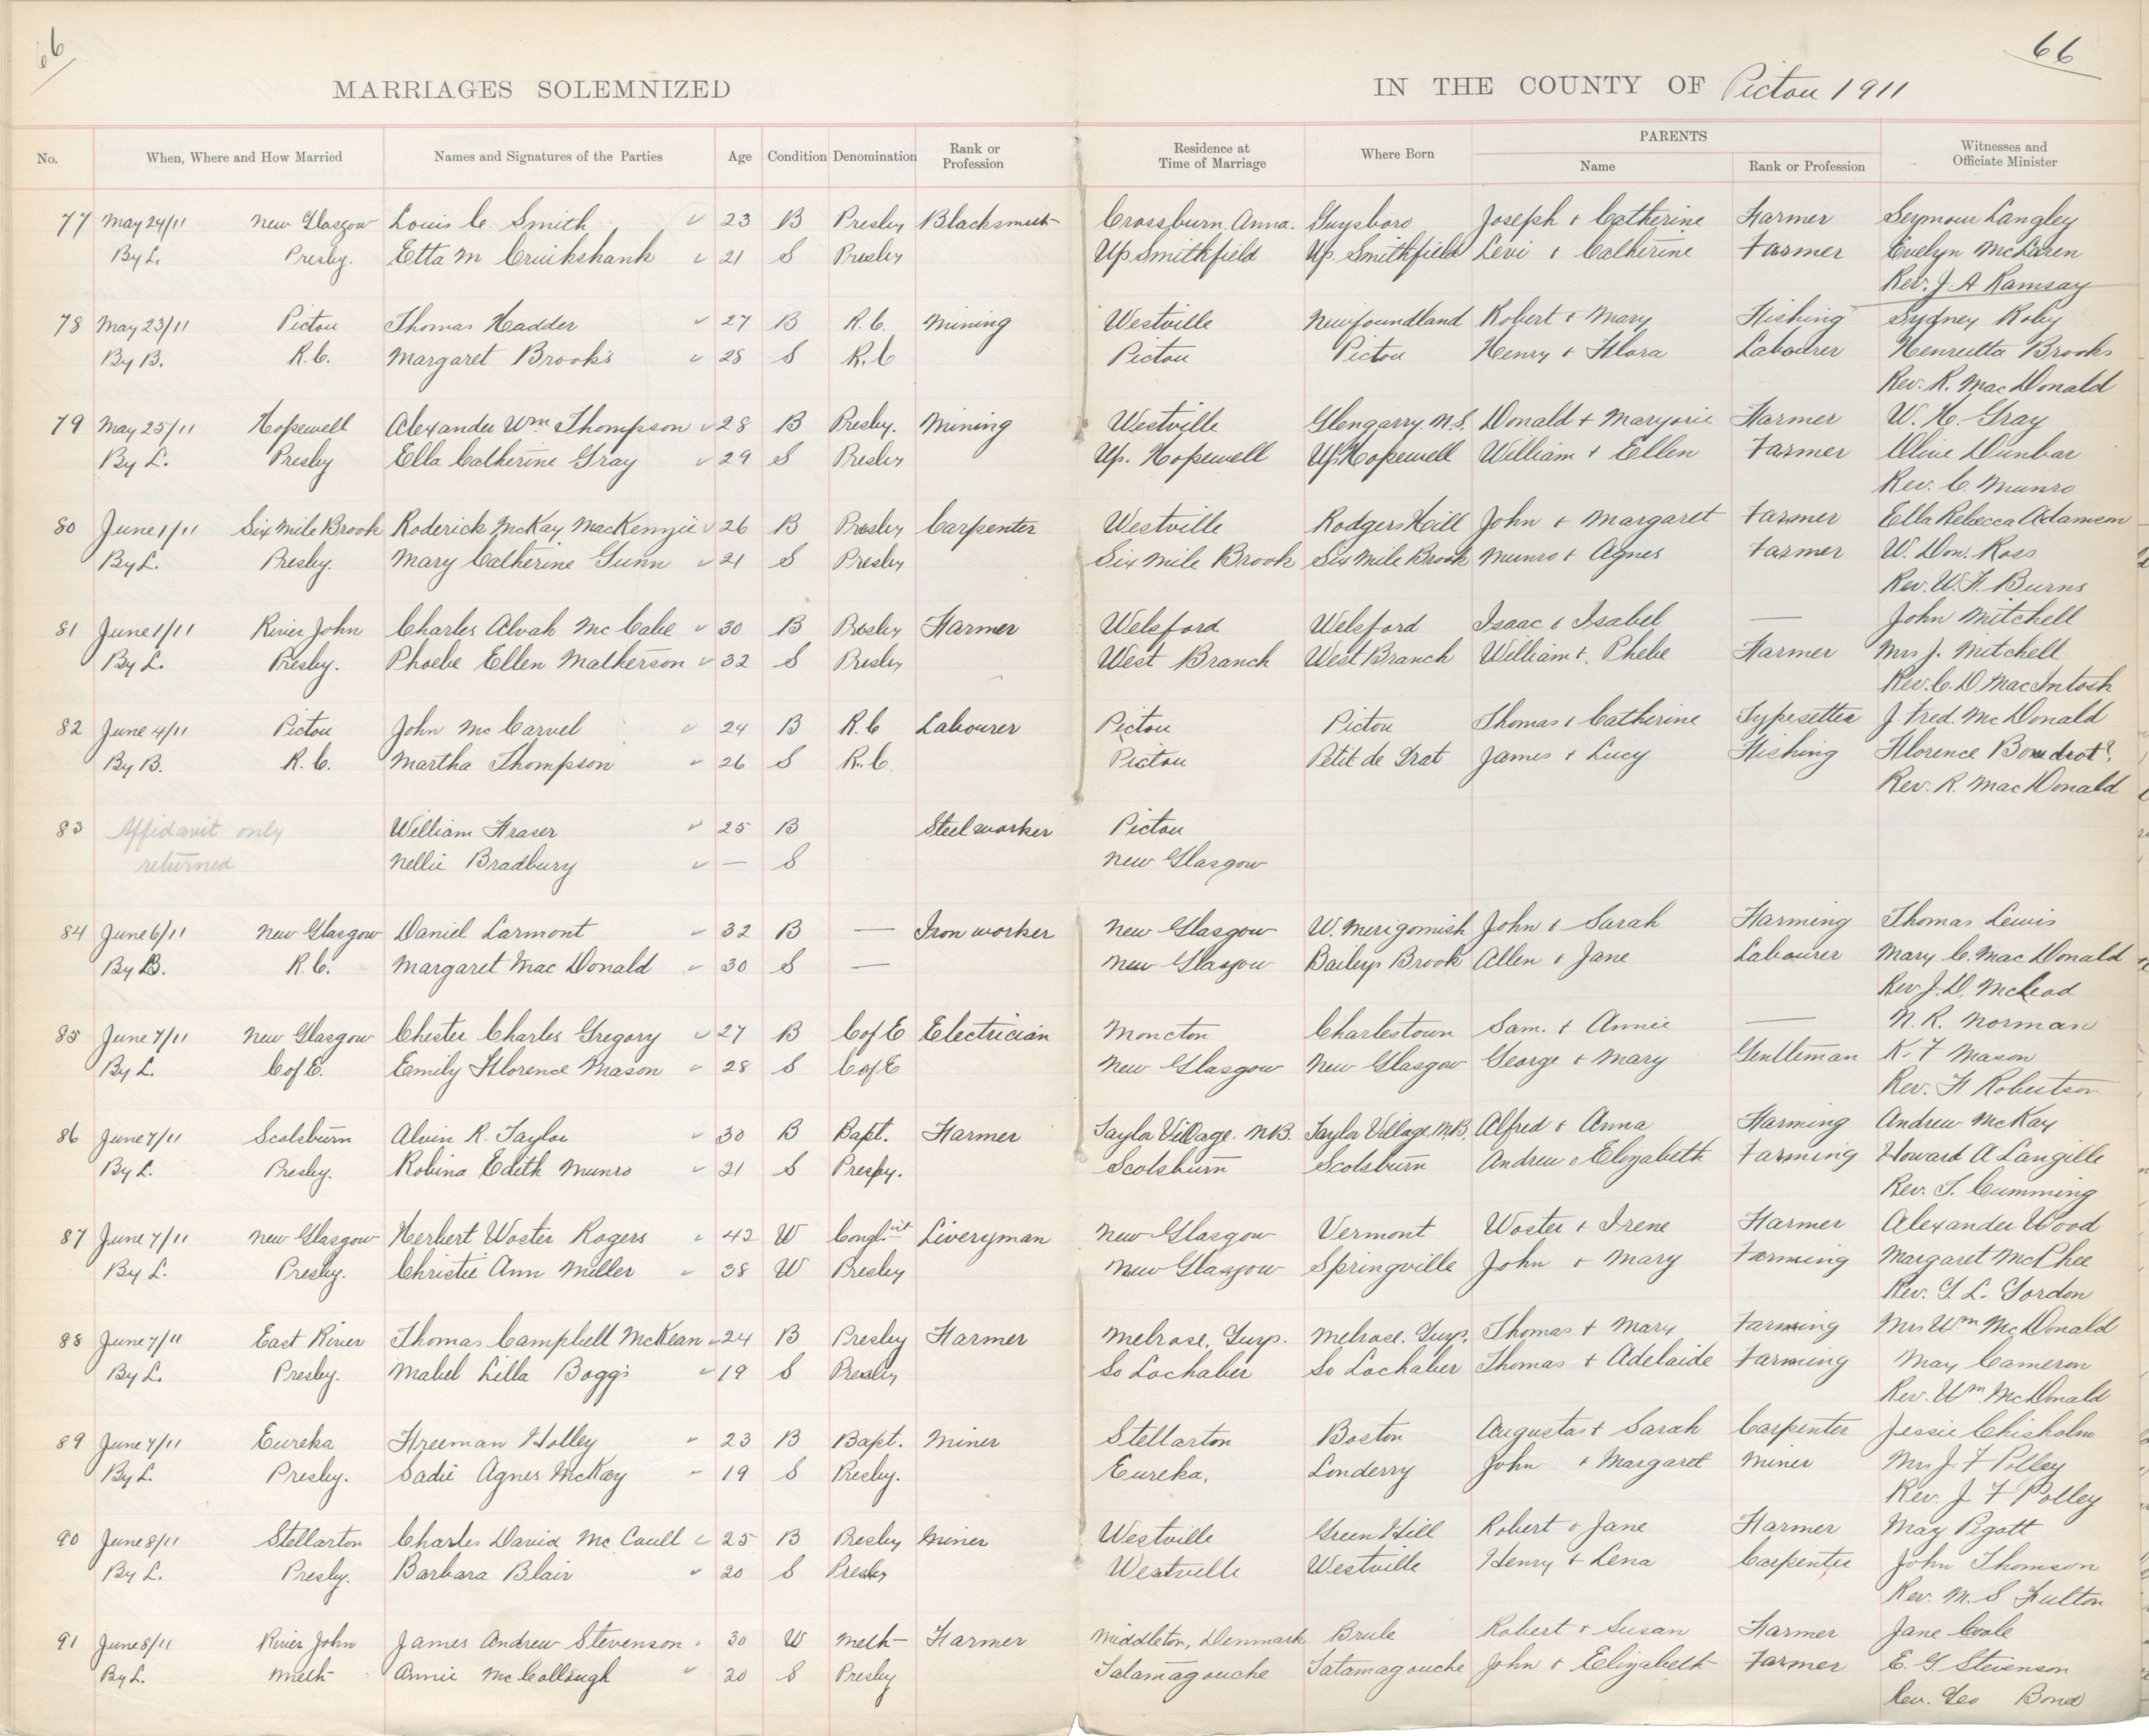 66
66
MARRIAGES SOLEMNIZED IN THE COUNTY OF Pictou 1911
No. When, Where and How Married Names and Signatures of the Parties Age Condition Denomination Rank or Profession Residence at Time of Marriage Where Born PARENTS Name Rank or Profession Witnesses and Officiate Minister
77 May 24/11 New Glasgow Louis C. Smith 23 B Presby Blacksmith Crossburn, Anna. Guysboro Joseph + Catherine Farmer Seymour Langley
By L. Presby. Etta M Cruikshank 21 S Presby Up Smithfield Up. Smithfield Levi + Catherine Farmer Evelyn McLaren
Rev. J. A Ramsay
78 May 23/11 Pictou Thomas Hadder 27 B R.C. Mining Westville Newfoundland Robert + Mary Fishing Sydney Roby
By B. R.C. Margaret Brooks 28 S R.C Pictou Pictou Henry + Flora Labourer Henrietta Brooks
Rev. R. MacDonald
79 May 25/11 Hopewell Alexander Wm Thompson 28 B Presby. Mining Westville Glengarry. N.S. Donald + Marjorie Farmer W. H. Gray
By L. Presby Ella Catherine Gray 29 S Presby Up. Hopewell Up. Hopewell William + Ellen Farmer Olive Dunbar
Rev. C. Munro
80 June 1/11 Six Mile Brook Roderick McKay MacKenzie 26 B Presby Carpenter Westville Rodgers Hill John + Margaret Farmer Ella Rebecca Adamson
By L. Presby. Mary Catherine Gunn 21 S Presby Six Mile Brook Six Mile Brook Munro + Agnes Farmer W. Don. Ross
Rev. W. F. Burns
81 June 1/11 River John Charles Alvah McCabe 30 B Presby Farmer Welsford Welsford Isaac & Isabel — John Mitchell
By L. Presby. Phoebe Ellen Matherson 32 S Presby West Branch West Branch William +. Phebe Farmer Mrs J. Mitchell
Rev. C. D. MacIntosh
82 June 4/11 Pictou John McCarvel 24 B R.C Labourer Pictou Pictou Thomas & Catherine Typesetter J. Fred. McDonald
By B. R.C. Martha Thompson 26 S R.C. Pictou Petit de Grat James + Lucy Fishing Florence Boudrot?
Rev. R. MacDonald
83 Affidavit only William Fraser 25 B Steelworker Pictou
returned Nellie Bradbury — S New Glasgow
84 June 6/11 New Glasgow Daniel Larmont 32 B — Iron worker New Glasgow W. Merigomish John & Sarah Farming Thomas Lewis
By B. R.C. Margaret MacDonald 30 S — New Glasgow Baileys Brook Allen + Jane Labourer Mary C. MacDonald
Rev J. D. McLeod
85 June 7/11 New Glasgow Chester Charles Gregory 27 B C of E Electrician Moncton Charlestown Sam. + Annie — N. R. Norman
By L. C of E. Emily Florence Mason 28 S C of E New Glasgow New Glasgow George + Mary Gentleman K. F Mason
Rev. H Robertson
86 June 7/11 Scotsburn Alvin R. Taylor 30 B Bapt. Farmer Taylor Village. N.B. Taylor Village, N.B. Alfred & Anna Farming Andrew McKay
By L. Presby. Robina Edith Munro 21 S Presby. Scotsburn Scotsburn Andrew & Elizabeth Farming Howard A Langille
Rev. T. Cumming
87 June 7/11 New Glasgow Herbert Woster Rogers 42 W Congl'ist Liveryman New Glasgow Vermont Woster + Irene Farmer Alexander Wood
By L. Presby. Christie Ann Miller 38 W Presby New Glasgow Springville John + Mary Farming Margaret McPhee
Rev. G. L. Gordon
88 June 7/11 East River Thomas Campbell McKean 24 B Presby Farmer Melrose, Guys. Melrose. Guys. Thomas + Mary Farming Mrs Wm McDonald
By L. Presby. Mabel Lilla Boggs 19 S Presby So Lochaber So Lochaber Thomas + Adelaide Farming May Cameron
Rev. Wm McDonald
89 June 7/11 Eureka Freeman Holley 23 B Bapt. Miner Stellarton Boston Augustas + Sarah Carpenter Jessie Chisholm
By L. Presby. Sadie Agnes McKay 19 S Presby. Eureka, Londerry John + Margaret Miner Mrs J. F Polley
Rev. J F Polley
90 June 8/11 Stellarton Charles David McCaull 25 B Presby Miner Westville Green Hill Robert & Jane Farmer May Pigott
By L. Presby. Barbara Blair 20 S Presby Westville Westville Henry + Lena Carpenter John Thomson
Rev. M. S Fulton
91 June 8/11 River John James Andrew Stevenson 30 W Meth Farmer Middleton, Denmark Brule Robert + Susan Farmer Jane Cole
By L. Meth Annie McCollough 20 S Presby Tatamagouche Tatamagouche John + Elizabeth Farmer E. G Stevenson
Rev. Geo Bond